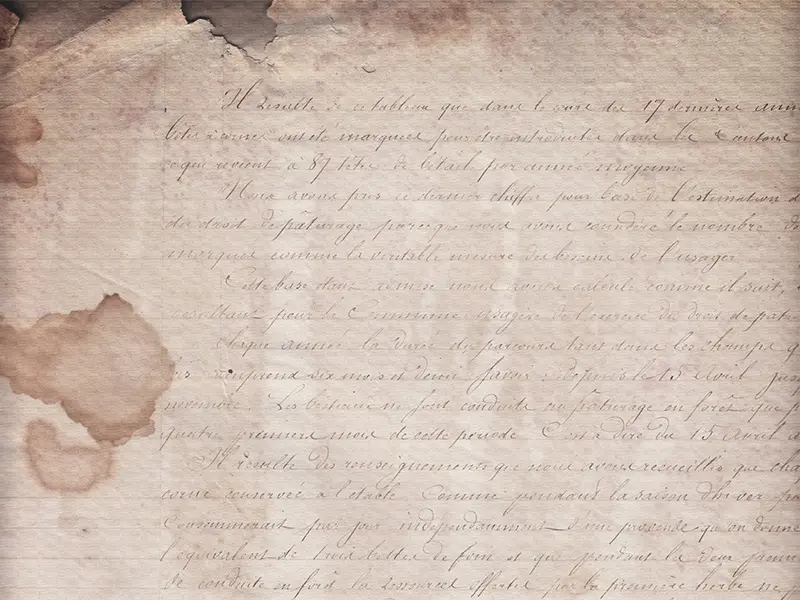 Il résulte de ce tableau que dans le cours des 17 dernières ann
bêtes à cornes ont été marquées pour être introduites dans les cantons
ce qui revient à 87 têtes de bétail par année moyenne
Nous avons pris ce dernier chiffre pour base de l'estimation d
du droit de pâturage parceque nous avons considéré le nombre de
marques comme la véritable mesure des besoins de l'usager
Cette base nous avons calculé comme il suit,
résultant pour la Commune usagère de l'exercice du droit de patu
Chaque année la durée du parcours tant dans les champs q
comprend six mois et demi savoir : depuis le 15 Avril jusq
novembre. Les bestiaux ne sont conduits au pâturage en forêt que p
quatre premiers mois de cette période C'est à dire du 15 Avril a
Il résulte des renseignements que nous avons recueillis que cha
corne conservée à l'étable Comme pendant la saison d'hiver
Consommerait par jour indépendamment d'une provende qu'on donne
l'équivalent de trois bottes de foin et que pendant la
de conduite en forêt la ressource offerte par la première herbe ne